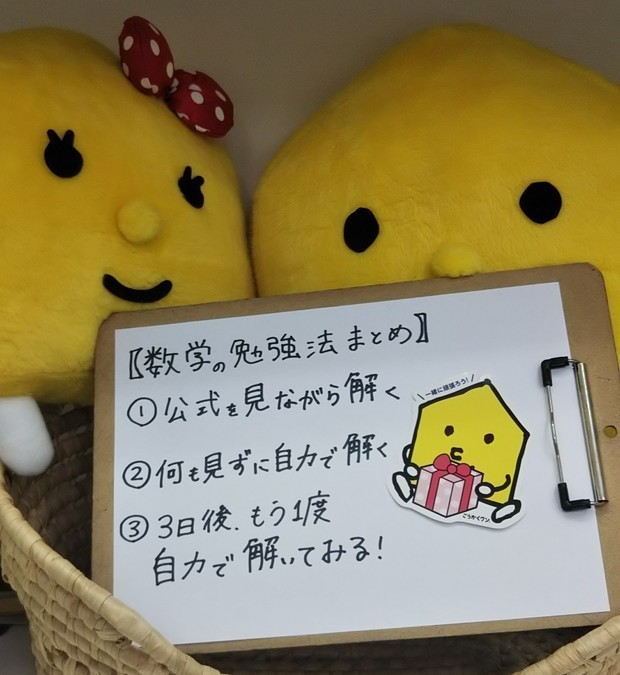 【数学の勉強法まとめ】
①公式を見ながら解く
②何も見ずに自力で解く
③3日後、もう1度
自力で解いてみる!
\一緒に頑張ろう!/
ごうかくワン